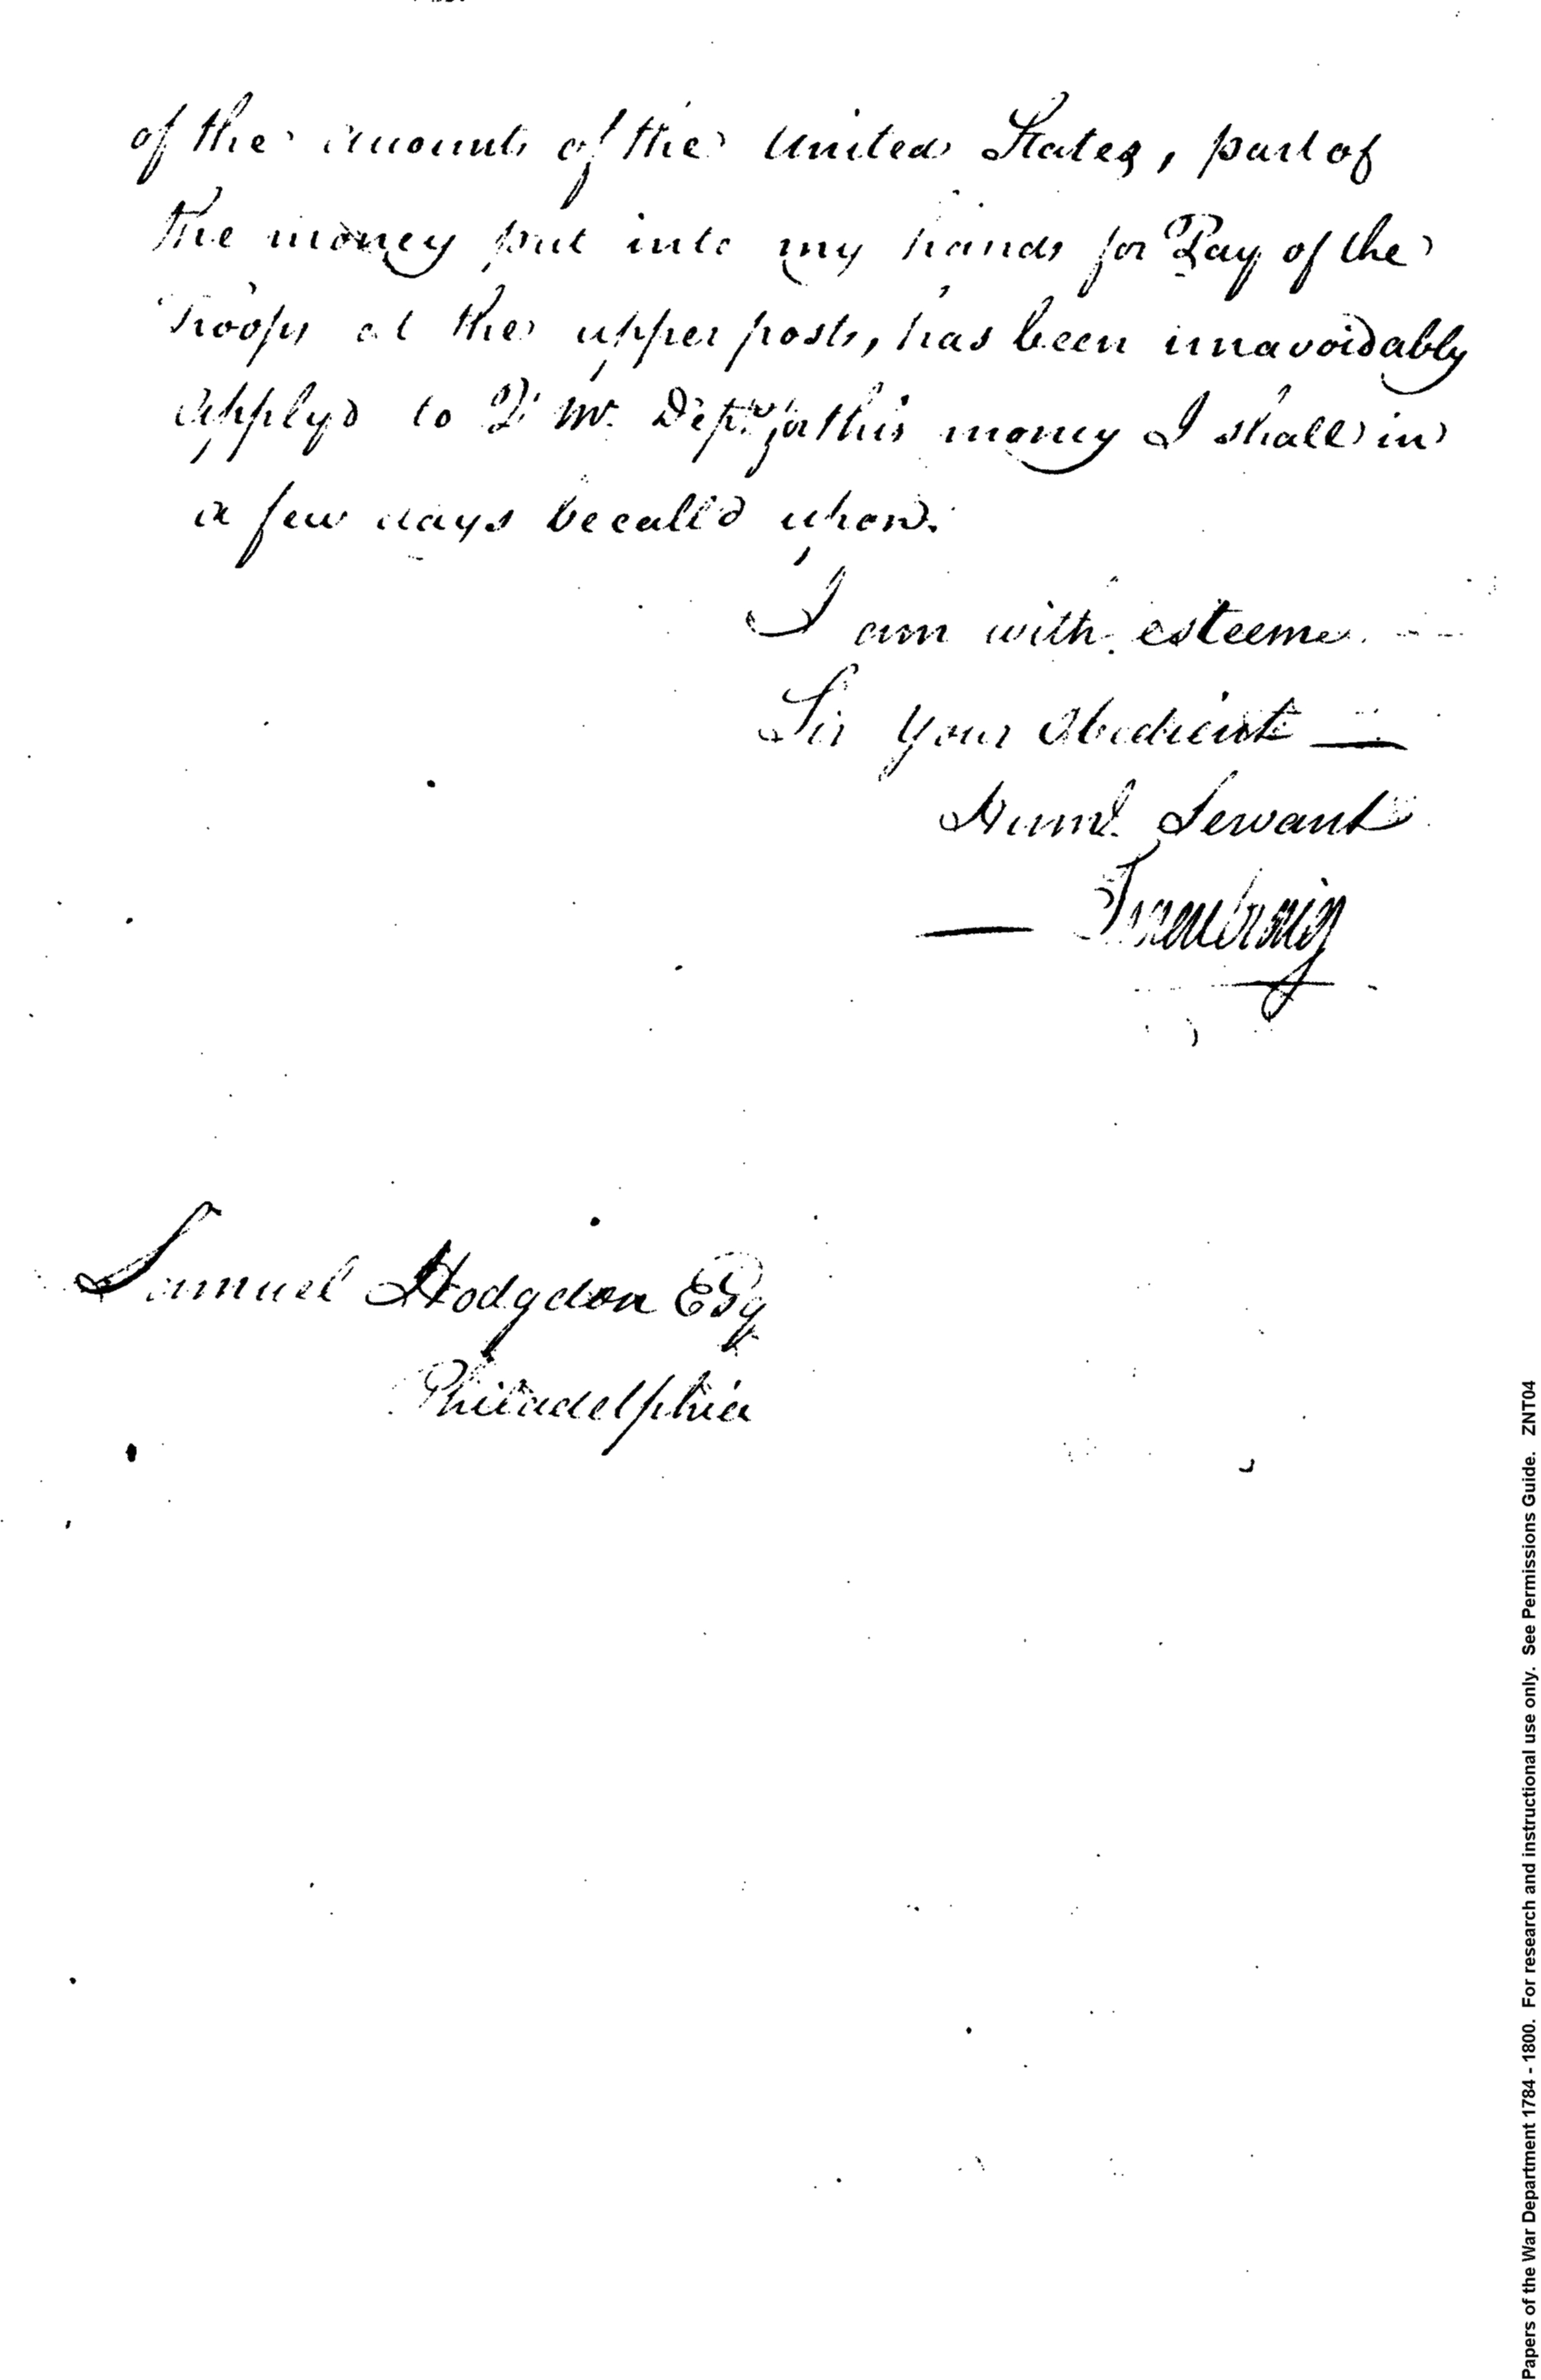 of the amounts of the United States, part of
the money put into my hands for Pay of the
Troops at the upper posts, has been unavoidably
apply'd to Q. Mr. Dept. for this money I shall in
a few days be call'd upon.
I am with esteeme
Sir Your Obedient —
Huml. Servant
— Isaac Craig
Samuel Hodgdon Esq
Philadelphia
Papers of the War Department 1784 - 1800. For research and instructional use only. See Permissions Guide. ZNT04